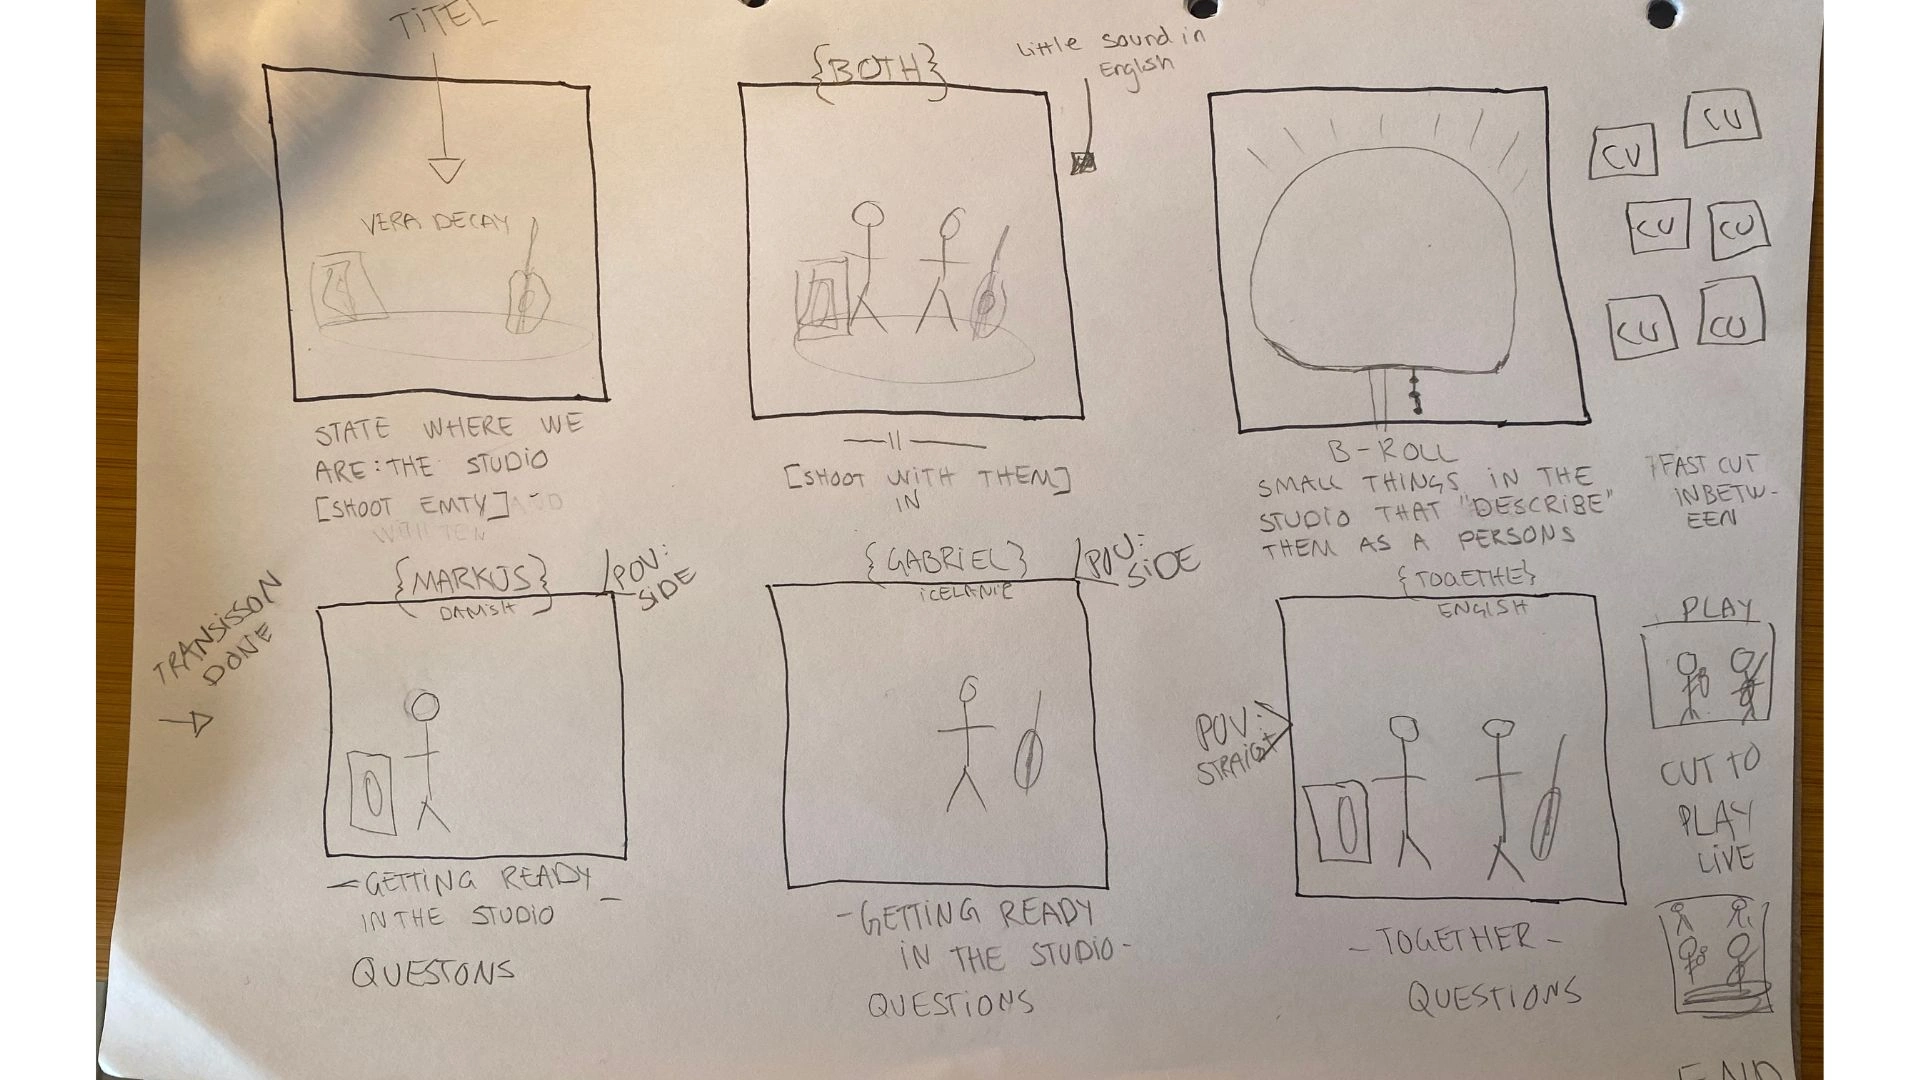 TITEL
VERA DECAY
STATE WHERE WE
ARE: THE STUDIO
[SHOOT EMTY]
{BOTH}
Little sound in
English
—11—
[SHOOT WITH THEM]
IN
CU
CU
CU
CU
CU
CU
B-ROLL
SMALL THINGS IN THE
STUDIO THAT "DESCRIBE"
THEM AS A PERSONS
FAST CUT
INBETW-
EEN
TRANSISSON
DONE
{MARKUS}
DANISH
POV:
SIDE
-GETTING READY-
IN THE STUDIO
QUESTONS
{GABRIEL}
ICELANIC
POV:
SIDE
-GETTING READY
IN THE STUDIO-
QUESTIONS
{TOGETHE}
ENGISH
POV:
STRAIGT
-TOGETHER-
QUESTIONS
PLAY
CUT TO
PLAY
LIVE
END